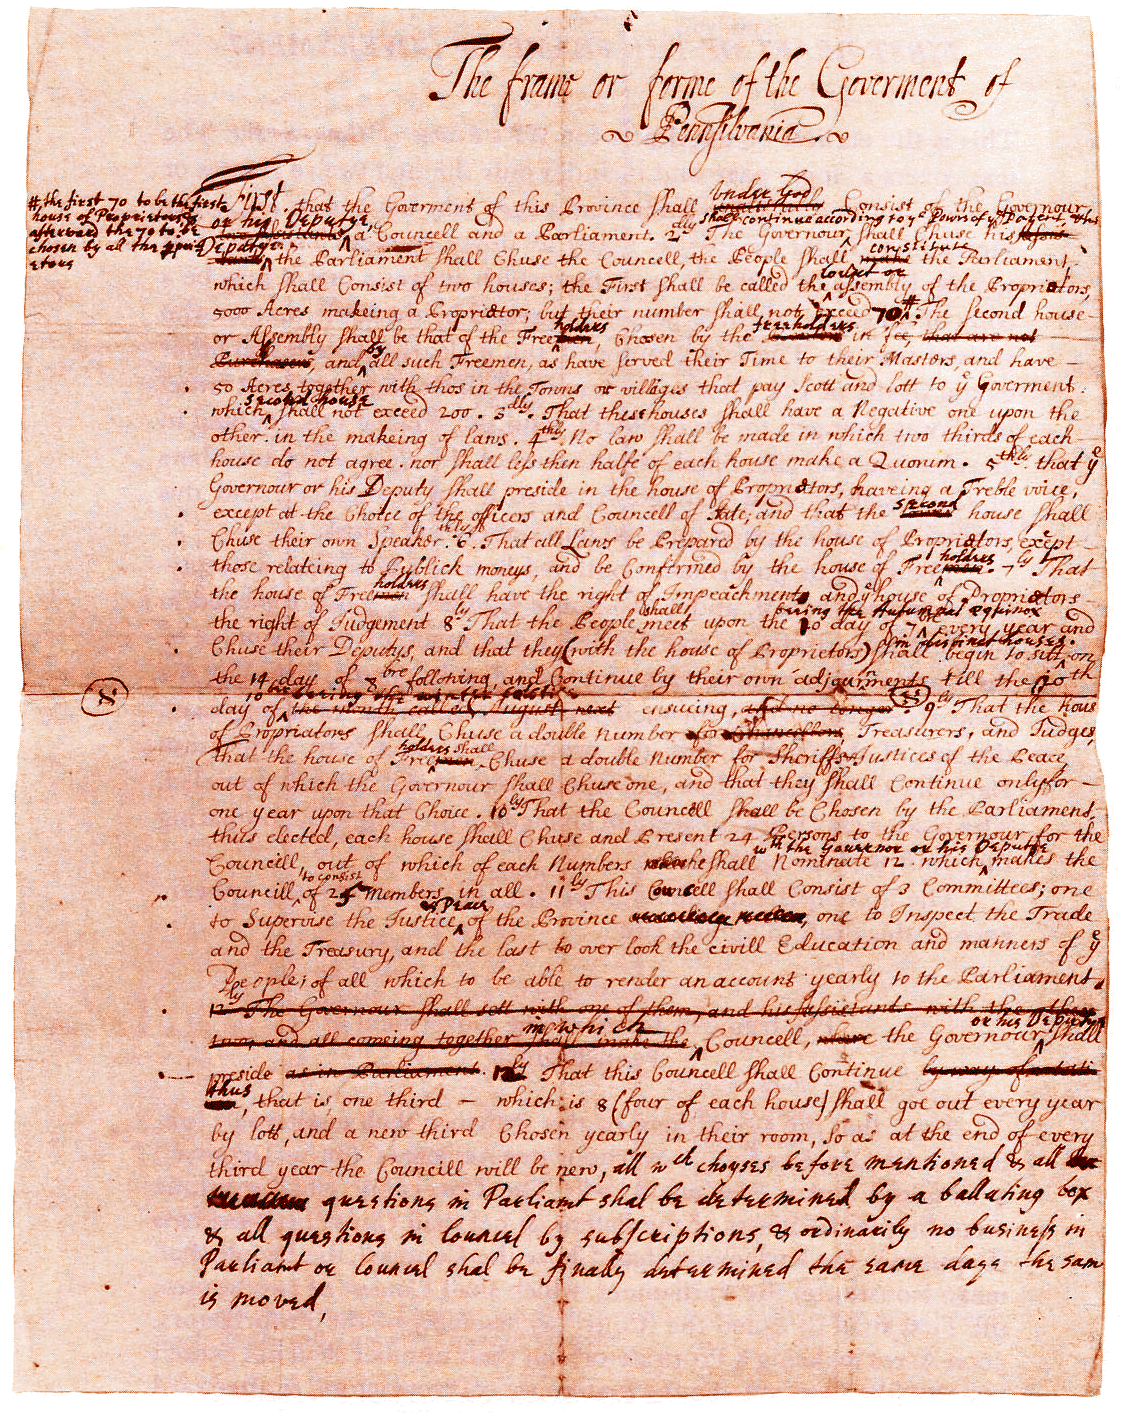 The frame or forme of the Goverment of
Pennsilvania.
#, the first 70 to be the first
house of Proprietors &
afterward the 70 to be
chosen by all the
etors
Under God
First, that the Goverment of this Province shall Consist of the Governour,
or his Deputye shall continue according to ye Powrs of ye Patent, & this
a Councell and a Parliament. 2dly The Governour shall Chuse his
Deputye constitute
the Parliament shall Chuse the Councell, the People shall the Parliament,
lower or
which shall Consist of two houses; the First shall be called the assembly of the Proprietors,
5000 Acres makeing a Proprietor; but their number shall not exceed 70 # The second house
holders freeholders
or Assembly shall be that of the Free, Chosen by the in fee, that are not
by
Purchasers, and all such Freemen, as have served their Time to their Masters, and have
50 Acres together with thos in the Towns or villages that pay Scott and lott to ye Goverment.
second house
which shall not exceed 200. 3dly. That these houses shall have a Negative one upon the
other. in the makeing of laws. 4thly No law shall be made in which two thirds of each
house do not agree. nor shall less then halfe of each house make a Quorum. 5thly that ye
Governour or his Deputy shall preside in the house of Proprietors, haveing a Treble voice,
second
except at the Choice of the officers and Councell of State; and that the house shall
Chuse their own Speaker. 6thly. That all Laws be Prepared by the house of Proprietors, except
holders
those relateing to Publick moneys, and be Confirmed by the house of Freemen. 7ly That
holders
the house of Freemen shall have the right of Impeachments and ye house of Proprietors
shall being the Autumnal equinox
the right of Judgement 8ly That the People meet upon the 10 day of 7bre every year and
in distinct houses.
Chuse their Deputys, and that they (with the house of Proprietors) shall begin to sitt on
the 14 day of 8bre following, and Continue by their own adjournments till the 10th
10bre being the winter solstice
8 day of the month called August next ensueing, and no longer. 9ly That the hous
of Propriators shall Chuse a double number for Chancellors, Treasurers, and Judges,
holders shall
that the house of Freemen, Chuse a double Number for Sheriffs & Justices of the Peace,
out of which the Governour shall Chuse one, and that they shall Continue only for
one year upon that Choice. 10ly That the Councell shall be Chosen by the Parliament,
thus elected, each house shall Chuse and Present 24 Persons to the Governour for the
wth the Gouvernor or his Deputye
Councill, out of which of each Numbers he shall Nominate 12. which makes the
to consist
Councill of 25 Members in all. 11ly This Councell shall Consist of 3 Committees; one
& Peace
to Supervise the Justice of the Province, one to Inspect the Trade
and the Treasury, and the last to over look the civill Education and manners of ye
People; of all which to be able to render an account yearly to the Parliament.
12ly The Governour shall sett with one of them, and his Assistants with the other
in which or his Deputye
two, and all comeing together shall make the Councell, where the Governour shall
preside as in Parliament. That this Councell shall Continue by way of
thus
, that is, one third — which is 8 (four of each house) shall goe out every year
by lott, and a new third Chosen yearly in their room, so as at the end of every
third year the Councill will be new, all wch choyses before mentioned & all
questions in Parliamt shal be determined by a ballating box
& all questions in Councel by subscriptions, & ordinarily no business in
Parliamt or Councel shal be finally determined the same daye the sam
is moved,